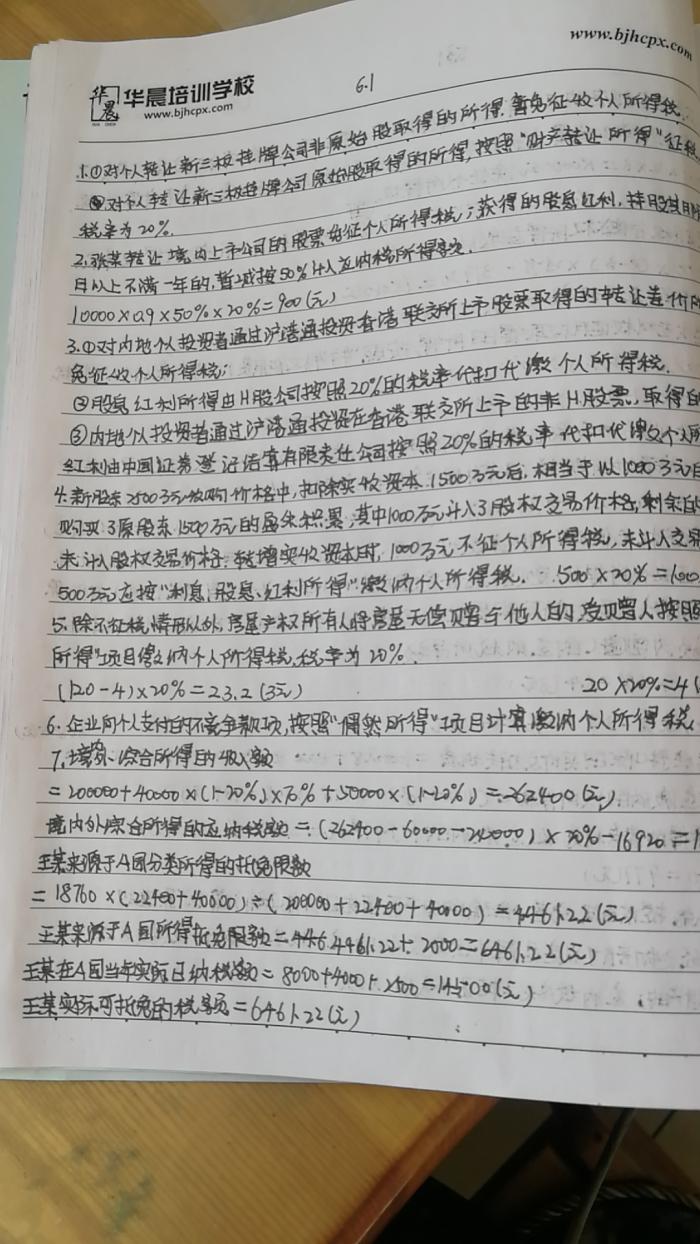 www.bjhcpx.com
华晨 华晨培训学校
www.bjhcpx.com
6.1
1.①对个人转让新三板挂牌公司非原始股取得的所得,暂免征收个人所得税.
②对个人转让新三板挂牌公司原始股取得的所得,按照"财产转让所得"征税
税率为20%.
2.张某转让境内上市公司的股票免征个人所得税;获得的股息红利,持股期
月以上不满一年的,暂减按50%计入应纳税所得额.
10000×0.9×50%×20%=900(元)
3.①对内地个人投资者通过沪港通投资香港联交所上市股票取得的转让差价所
免征收个人所得税;
②股息红利所得由H股公司按照20%的税率代扣代缴个人所得税.
③内地个人投资者通过沪港通投资在香港联交所上市的非H股票,取得的
红利由中国证券登记结算有限责任公司按照20%的税率代扣代缴个人所
4.新股东2500万元收购价格中,扣除实收资本1500万元后,相当于以1000万元
购买了原股东1500万元的盈余积累,其中1000万元计入了股权交易价格,剩余
未计入股权交易价格.转增实收资本时,1000万元不征个人所得税,未计入交
500万元应按"利息、股息、红利所得"缴纳个人所得税. 500×20%=100
5.除不征税情形以外,房屋产权所有人将房屋无偿赠与他人的,受赠人按照
所得"项目缴纳个人所得税,税率为20%.
(120-4)×20%=23.2(万元) 20×20%=4(
6.企业向个人支付的不竞争款项,按照"偶然所得"项目计算缴纳个人所得税
7.境内外综合所得的收入额
=200000+40000×(1-20%)×70%+50000×(1-20%)=262400(元)
境内外综合所得的应纳税额=(262400-60000-)×20%-16920=1
王某来源于A国分类所得的抵免限额
=18760×(22400+40000)÷(200000+22400+40000)=4461.22(元)
王某来源于A国所得抵免限额=4461.22+2000=6461.22(元)
王某在A国当年实际已纳税额=8000+4000+2500=14500(元)
王某实际可抵免的税额=6461.22(元)